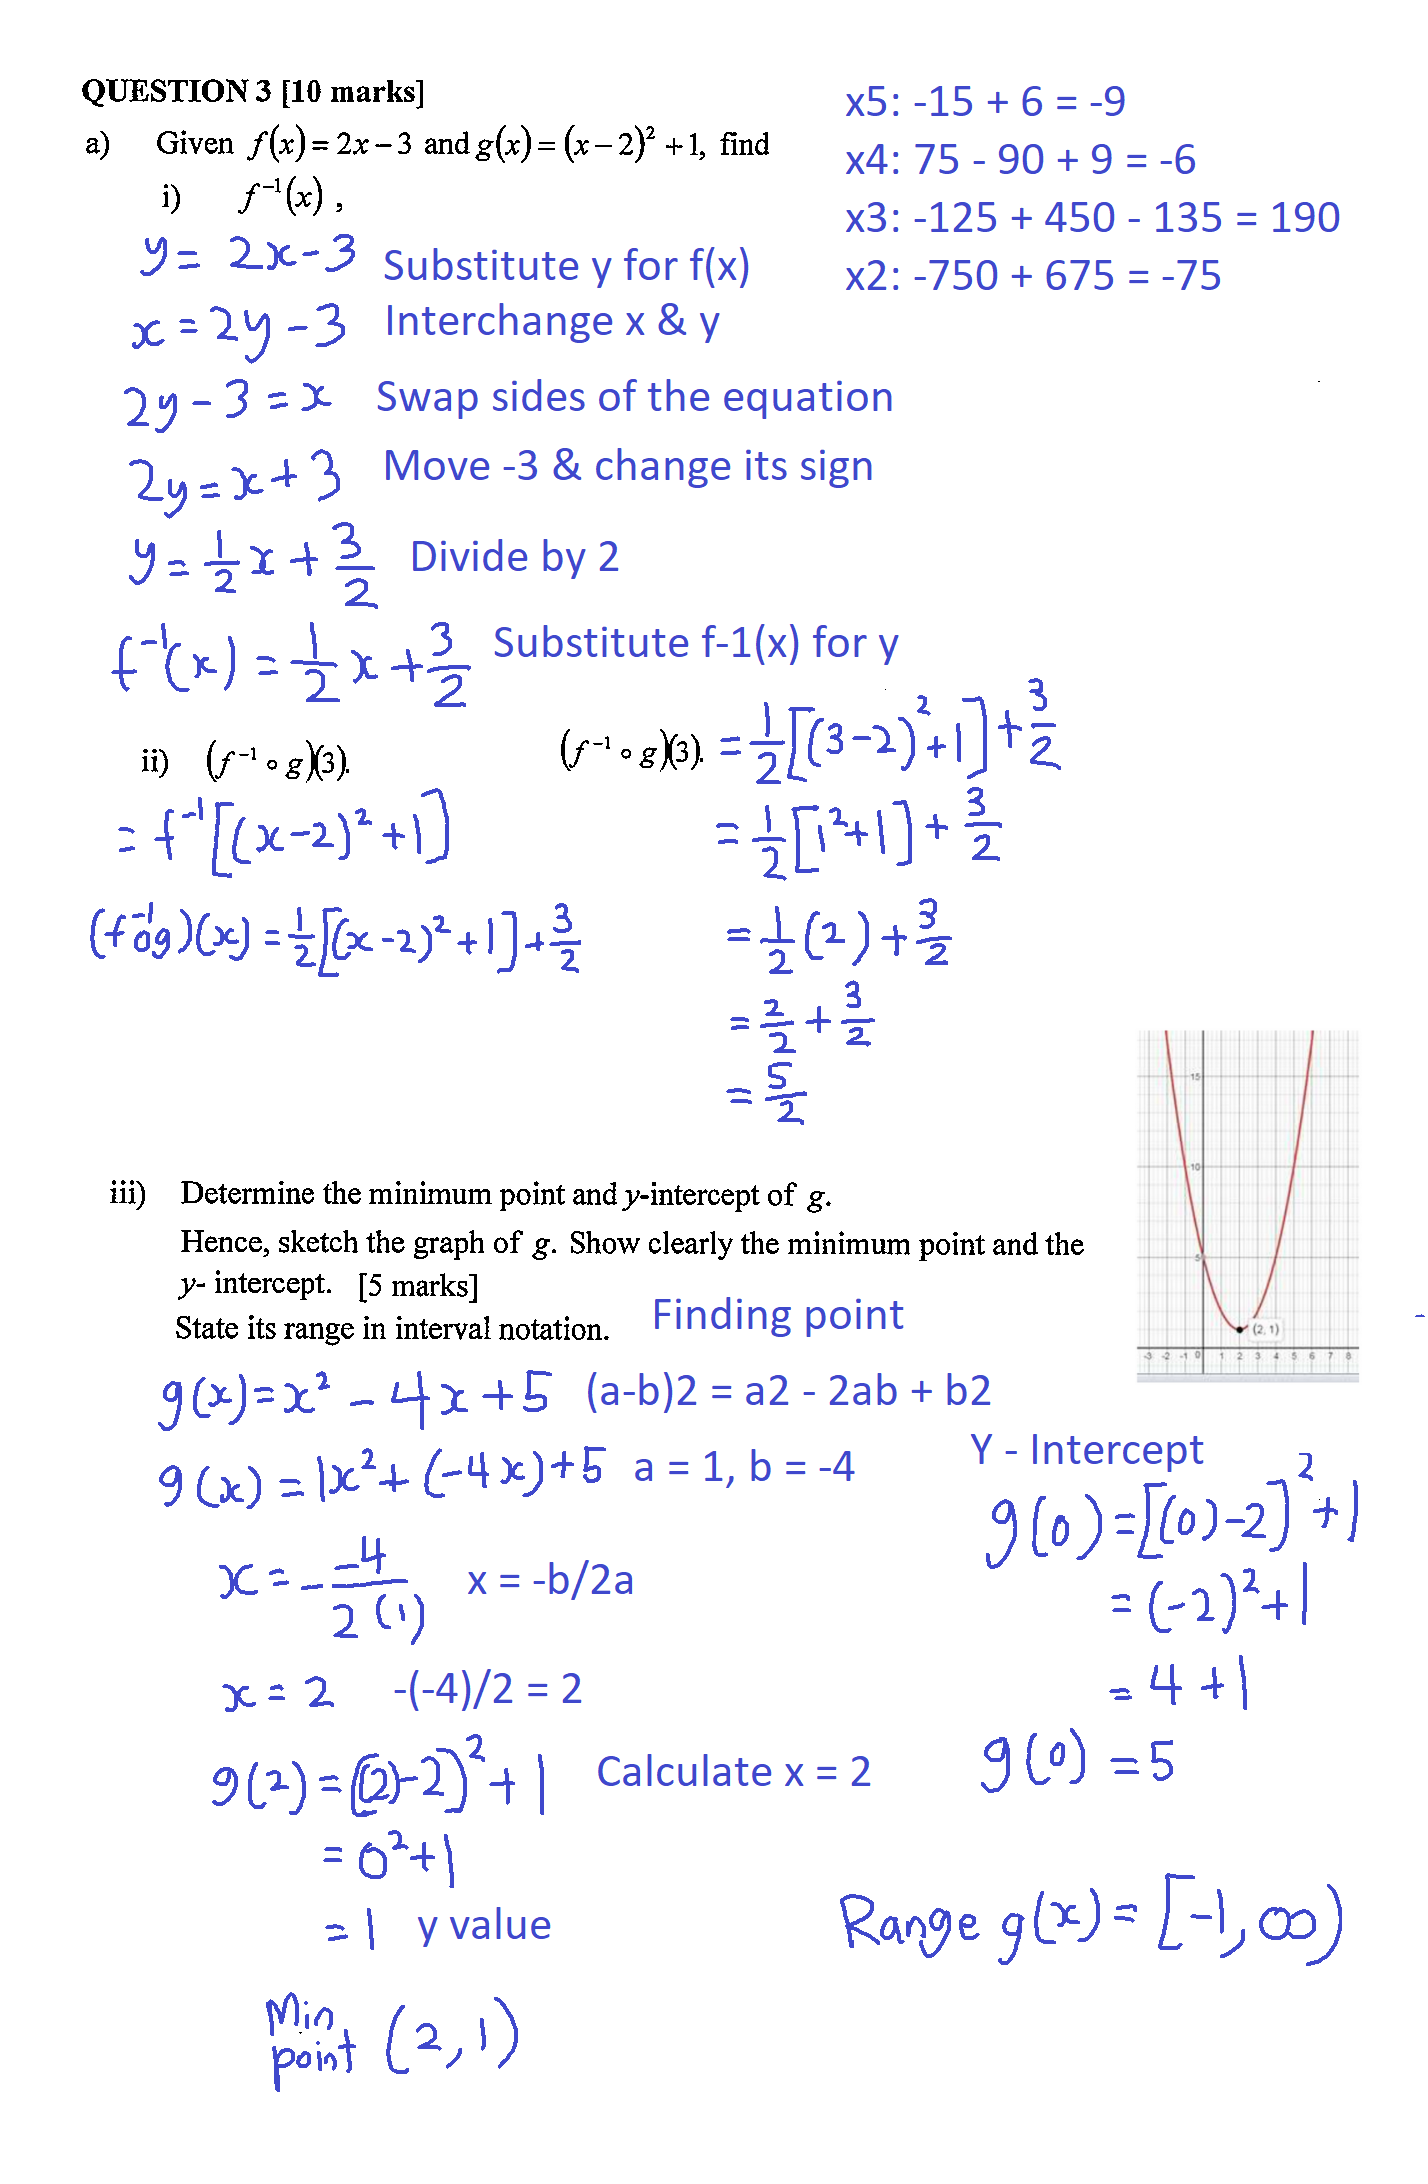 QUESTION 3 [10 marks]
a) Given f(x) = 2x − 3 and g(x) = (x − 2)² + 1, find
i) f⁻¹(x) ,
x5: -15 + 6 = -9
x4: 75 - 90 + 9 = -6
x3: -125 + 450 - 135 = 190
x2: -750 + 675 = -75
y = 2x - 3 Substitute y for f(x)
x = 2y - 3 Interchange x & y
2y - 3 = x Swap sides of the equation
2y = x + 3 Move -3 & change its sign
y = 1/2 x + 3/2 Divide by 2
f⁻¹(x) = 1/2 x + 3/2 Substitute f-1(x) for y
ii) (f⁻¹ ∘ g)(3).
= f⁻¹[(x-2)² + 1]
(f⁻¹og)(x) = 1/2[(x-2)² + 1] + 3/2
(f⁻¹ ∘ g)(3). = 1/2[(3-2)² + 1] + 3/2
= 1/2[1² + 1] + 3/2
= 1/2(2) + 3/2
= 2/2 + 3/2
= 5/2
15
10
5
(2, 1)
-3 -2 -1 0 1 2 3 4 5 6 7 8
iii) Determine the minimum point and y-intercept of g.
Hence, sketch the graph of g. Show clearly the minimum point and the
y- intercept. [5 marks]
State its range in interval notation. Finding point
g(x) = x² - 4x + 5 (a-b)2 = a2 - 2ab + b2
g(x) = 1x² + (-4x) + 5 a = 1, b = -4
x = - -4/2(1) x = -b/2a
x = 2 -(-4)/2 = 2
g(2) = [(2)-2]² + 1 Calculate x = 2
= 0² + 1
= 1 y value
Min
point (2, 1)
Y - Intercept
g(0) = [(0)-2]² + 1
= (-2)² + 1
= 4 + 1
g(0) = 5
Range g(x) = [-1, ∞)